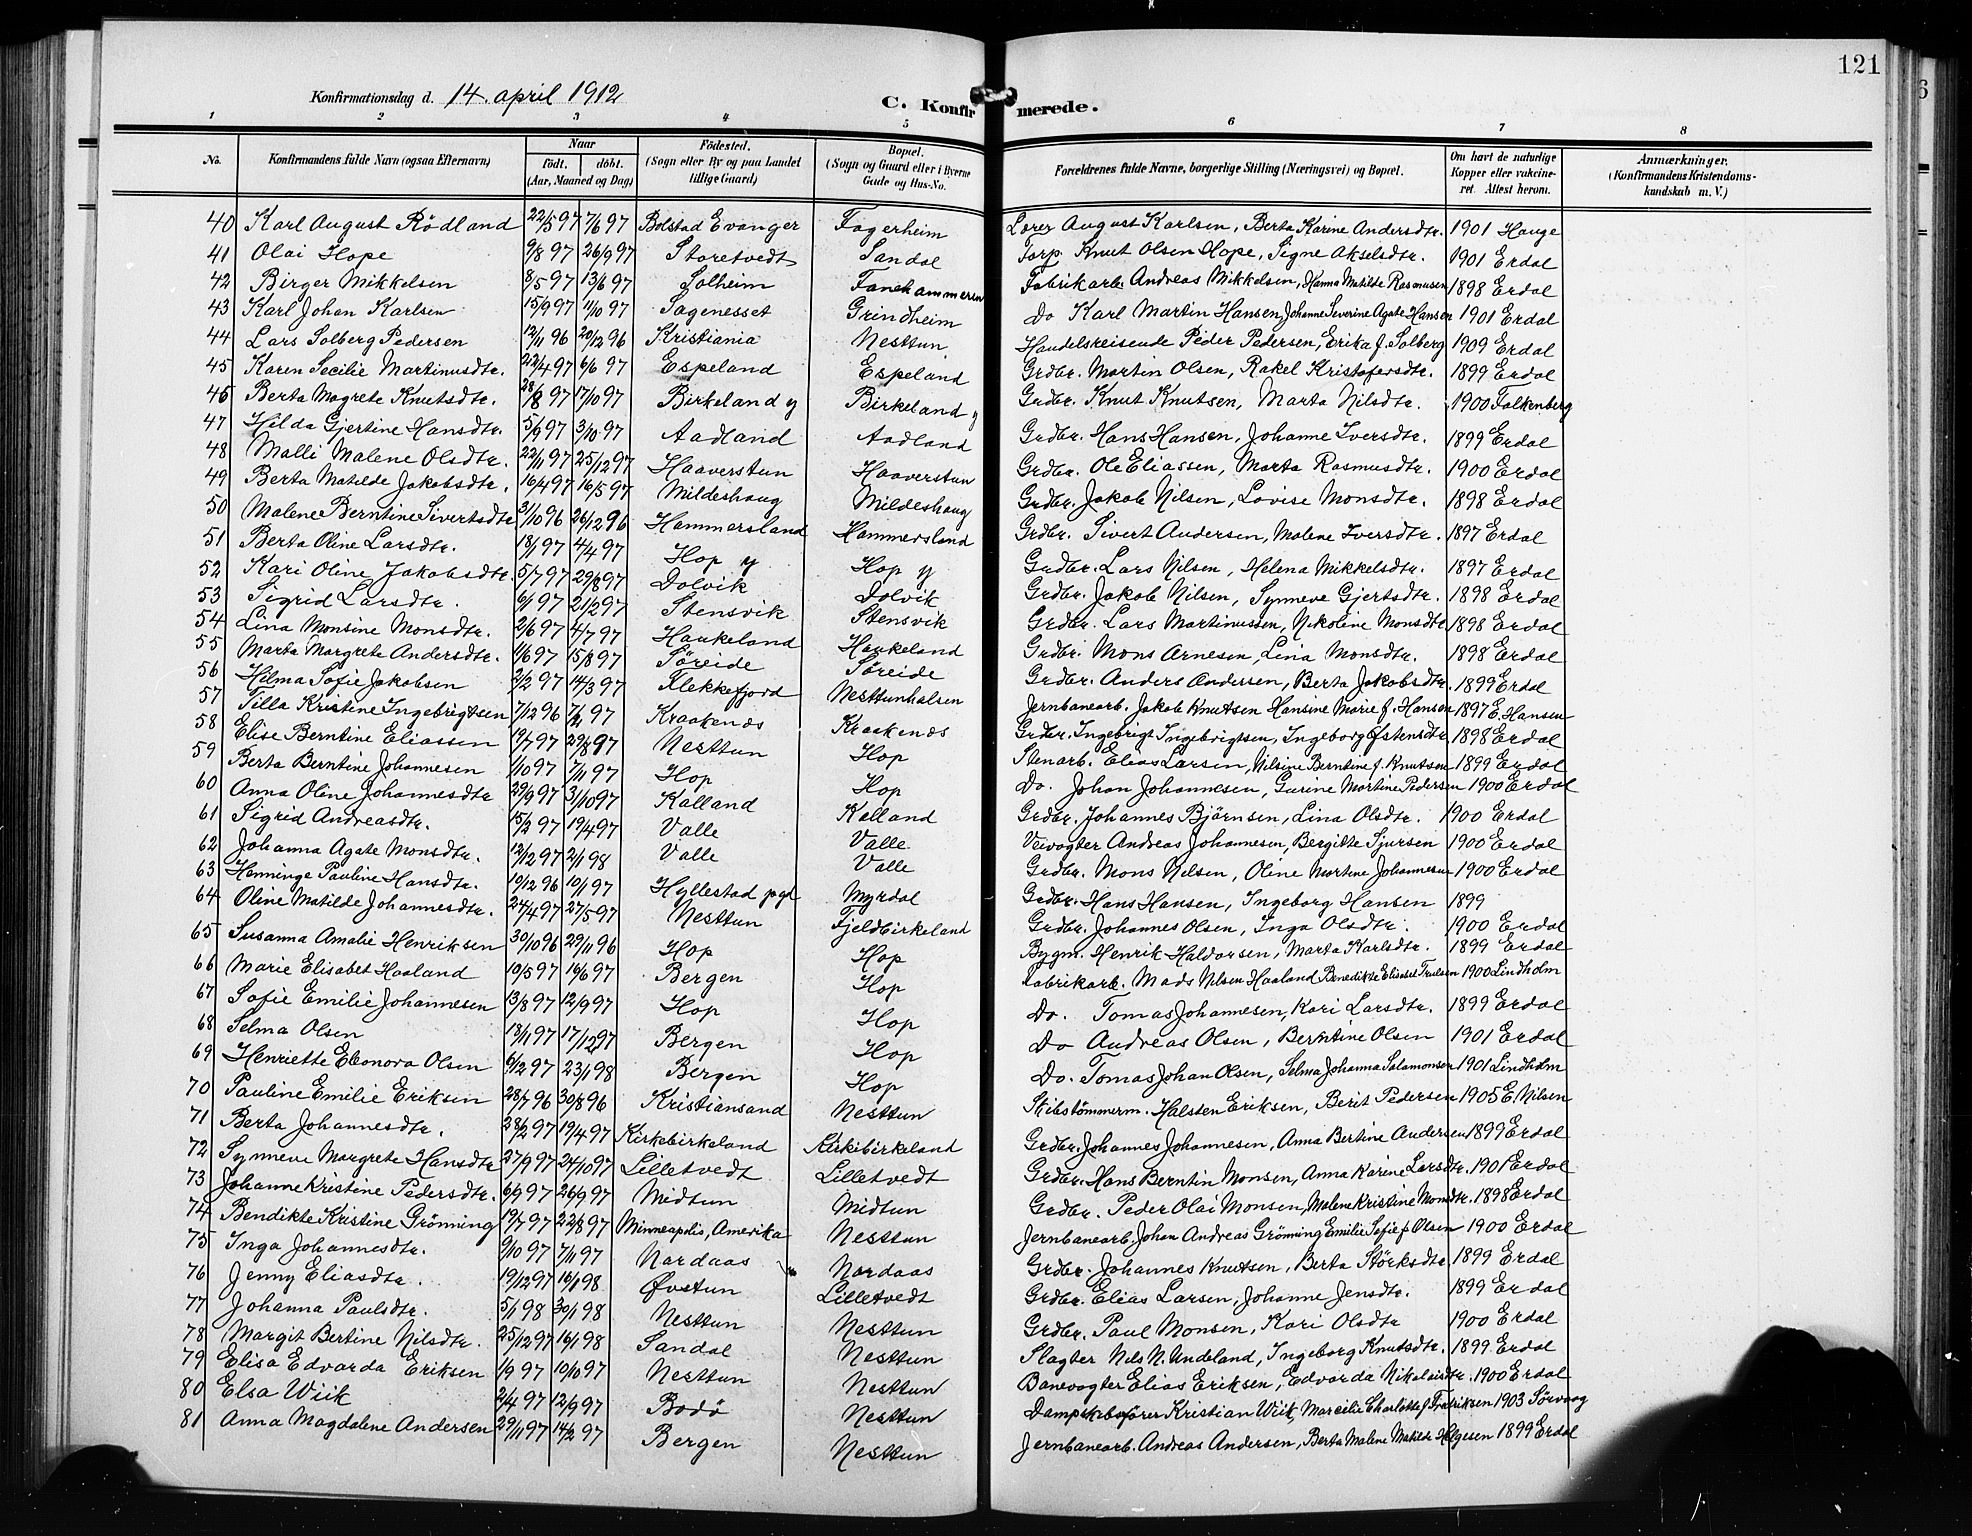 121
Konfirmationsdag d. 14. april 1912
C. Konfirmerede.
1 2 3 4 5 6 7 8
No. Konfirmandens fulde Navn (ogsaa Efternavn) Naar født. døbt. (Aar, Maaned og Dag) Fødested. (Sogn eller By og paa Landet tillige Gaard) Bopæl. (Sogn og Gaard eller i Byerne Gade og Hus-No. Forældrenes fulde Navne, borgerlige Stilling (Næringsvei) og Bopæl. Om havt de naturlige Kopper eller vakcineret. Attest herom. Anmærkninger. (Konfirmandens Kristendomskundskab m. V.)
40 Karl August Rödland 22/5 97 7/6 97 Bolstad Evanger Fagerheim Lærer August Karlsen, Berta Karine Andersdtr. 1901 Hauge
41 Olai Hope 9/8 97 26/9 97 Storetvedt Sandal Forp. Knut Olsen Hope, Signe Akselsdtr. 1901 Erdal
42 Birger Mikkelsen 8/5 97 13/6 97 Solheim Fanehammeren Fabrikarb. Andreas Mikkelsen, Hanna Matilde Rasmusen 1898 Erdal
43 Karl Johan Karlsen 15/9 97 11/10 97 Sagenesset Grindheim Do Karl Martin Hansen, Johanne Severine Agate Hansen 1901 Erdal
44 Lars Solberg Pedersen 12/11 96 20/12 96 Kristiania Nesttun Handelsreisende Peder Pedersen, Erika f. Solberg 1909 Erdal
45 Karen Secilie Martinusdtr. 22/4 97 6/6 97 Espeland Espeland Grdbr. Martin Olsen, Rakel Kristofersdtr. 1899 Erdal
46 Berta Magrete Knutsdtr. 28/8 97 17/10 97 Birkeland y Birkeland y Grdbr. Knut Knutsen, Marta Nilsdtr. 1900 Falkenberg
47 Hilda Gjertine Hansdtr. 5/9 97 3/10 97 Aadland Aadland Grdbr. Hans Hansen, Johanne Iversdtr. 1899 Erdal
48 Malli Malene Olsdtr. 22/11 97 25/12 97 Haaverstun Haaverstun Grdbr. Ole Eliassen, Marta Rasmusdtr. 1900 Erdal
49 Berta Matilde Jakobsdtr. 16/4 97 16/5 97 Mildeshaug Mildeshaug Grdbr. Jakob Nilsen, Lovise Monsdtr. 1898 Erdal
50 Malene Berntine Sivertsdtr 31/10 96 26/12 96 Hammersland Hammersland Grdbr. Sivert Andersen, Malene Iversdtr. 1897 Erdal
51 Berta Oline Larsdtr. 18/1 97 4/4 97 Hop y Hop y Grdbr. Lars Nilsen, Helena Mikkelsdtr. 1897 Erdal
52 Kari Oline Jakobsdtr. 5/7 97 29/8 97 Dolvik Dolvik Grdbr. Jakob Nilsen, Synneve Gjertsdtr. 1898 Erdal
53 Sigrid Larsdtr. 6/1 97 21/2 97 Stensvik Stensvik Grdbr. Lars Martinussen, Nikoline Monsdtr 1898 Erdal
54 Lina Monsine Monsdtr. 2/6 97 4/7 97 Haukeland Haukeland Grdbr. Mons Arnesen, Lina Monsdtr. 1898 Erdal
55 Marta Margrete Andersdtr. 1/6 97 15/8 97 Søreide Søreide Grdbr. Anders Andersen, Berta Jakobsdtr. 1899 Erdal
56 Hilma Sofie Jakobsen 2/2 97 14/3 97 Flekkefjord Nesttunhalsen Jernbanearb. Jakob Knutsen Hansine Marie f. Hansen 1897 E. Hansen
57 Tilla Kristine Ingebrigtsen 7/12 96 97 Kraakenes Kraakenes Grdbr. Ingebrigt Ingebrigtsen, Ingeborg Østensdtr 1898 Erdal
58 Elise Berntine Eliassen 19/7 97 29/8 97 Nesttun Hop Stenarb. Elias Larsen, Nilsine Berntine f. Knutsen 1899 Erdal
59 Berta Berntine Johannesen 1/10 97 7/11 97 Hop Hop Do. Johan Johannesen, Garine Martine Pedersen 1900 Erdal
60 Anna Oline Johannesdtr 29/9 97 31/10 97 Kalland Kalland Grdbr. Johannes Bjørnsen, Lina Olsdtr. 1900 Erdal
61 Sigrid Andreasdtr. 15/2 97 19/4 97 Valle Valle Veivogter Andreas Johannesen, Bergitte Sjursen 1900 Erdal
62 Johanna Agate Monsdtr. 12/12 97 2/1 98 Valle Valle Grdbr. Mons Nilsen, Oline Martine Johannesen 1900 Erdal
63 Henninge Pauline Hansdtr. 10/12 96 10/1 97 Hyllestad pgl Myrdal Grdbr. Hans Hansen, Ingeborg Hansen 1899
64 Oline Matilde Johannesdtr. 24/4 97 27/5 97 Nesttun Fjeldbirkeland Grdbr. Johannes Olsen, Inga Olsdtr. 1900 Erdal
65 Susanna Amalie Henriksen 30/10 96 29/11 96 Hop Hop Bygm. Henrik Haldorsen, Marta Karlsdtr. 1899 Erdal
66 Marie Elisabet Haaland 10/5 97 16/6 97 Bergen Hop Fabrikarb. Mads Nilsen Haaland Benedikte Elisabet Trulsen 1900 Lindholm
67 Sofie Emilie Johannesen 13/8 97 12/9 97 Hop Hop Do. Tomas Johannesen, Kari Larsdtr. 1899 Erdal
68 Selma Olsen 13/11 97 17/12 97 Bergen Hop Do Andreas Olsen, Berntine Olsen 1901 Erdal
69 Henriette Eleonora Olsen 6/12 97 23/1 98 Bergen Hop Do. Tomas Johan Olsen, Selma Johanna Salamonsen 1901 Lindholm
70 Pauline Emilie Eriksen 28/7 96 30/8 96 Kristiansand Nesttun Skibstömmerm. Halsten Eriksen, Berit Pedersen 1905 E. Nilsen
71 Berta Johannesdtr. 28/2 97 19/4 97 Kirkebirkeland Kirkebirkeland Grdbr. Johannes Johannesen, Anna Bertine Andersen 1899 Erdal
72 Synneve Margrete Hansdtr 27/9 97 24/10 97 Lilletvedt Lilletvedt Grdbr. Hans Berntin Monsen, Anna Karine Larsdtr. 1901 Erdal
73 Johanne Kristine Pedersdtr. 6/9 97 26/9 97 Midtun Midtun Grdbr. Peder Olai Monsen, Malene Kristine Monsdtr. 1898 Erdal
74 Bendikte Kristine Grönning 19/7 97 22/8 97 Minneapolis, Amerika Nesttun Jernbanearb. Johan Andreas Grönning Emilie Sofie f Olsen 1900 Erdal
75 Inga Johannesdtr. 9/10 97 7/11 97 Nordaas Nordaas Grdbr. Johannes Knutsen, Berta Störksdtr 1899 Erdal
76 Jenny Eliasdtr. 19/12 97 16/1 98 Øvstun Lilletvedt Grdbr. Elias Larsen, Johanne Jensdtr. 1899 Erdal
77 Johanna Paulsdtr. 5/1 98 30/1 98 Nesttun Nesttun Grdbr. Paul Monsen, Kari Olsdtr 1900 Erdal
78 Margit Bertine Nilsdtr. 25/12 97 16/1 98 Sandal Nesttun Slagter Nils N. Undeland, Ingeborg Knutsdtr. 1899 Erdal
79 Elisa Edvarda Eriksen 1/9 97 10/10 97 Nesttun Nesttun Banevogter Elias Eriksen, Edvarda Nikolaisdtr. 1900 Erdal
80 Elsa Wiik 2/4 97 12/9 97 Bodö Nesttun Dampskibsfører Kristian Wiik, Marcelie Charlotte f Fredriksen 1903 Sörvaag
81 Anna Magdalene Andersen 29/11 97 14/2 97 Bergen Nesttun Jernbanearb. Andreas Andersen, Berta Malene Matilde Helgesen 1899 Erdal